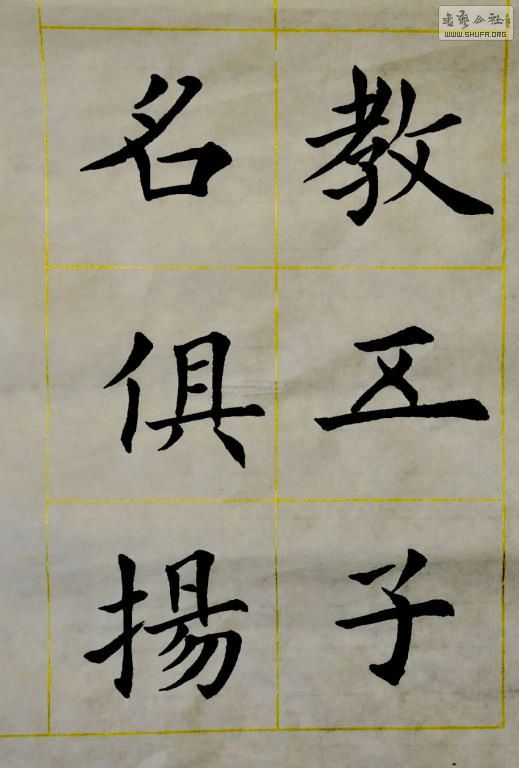 教五子
名俱揚
书艺公社
WWW.SHUFA.ORG